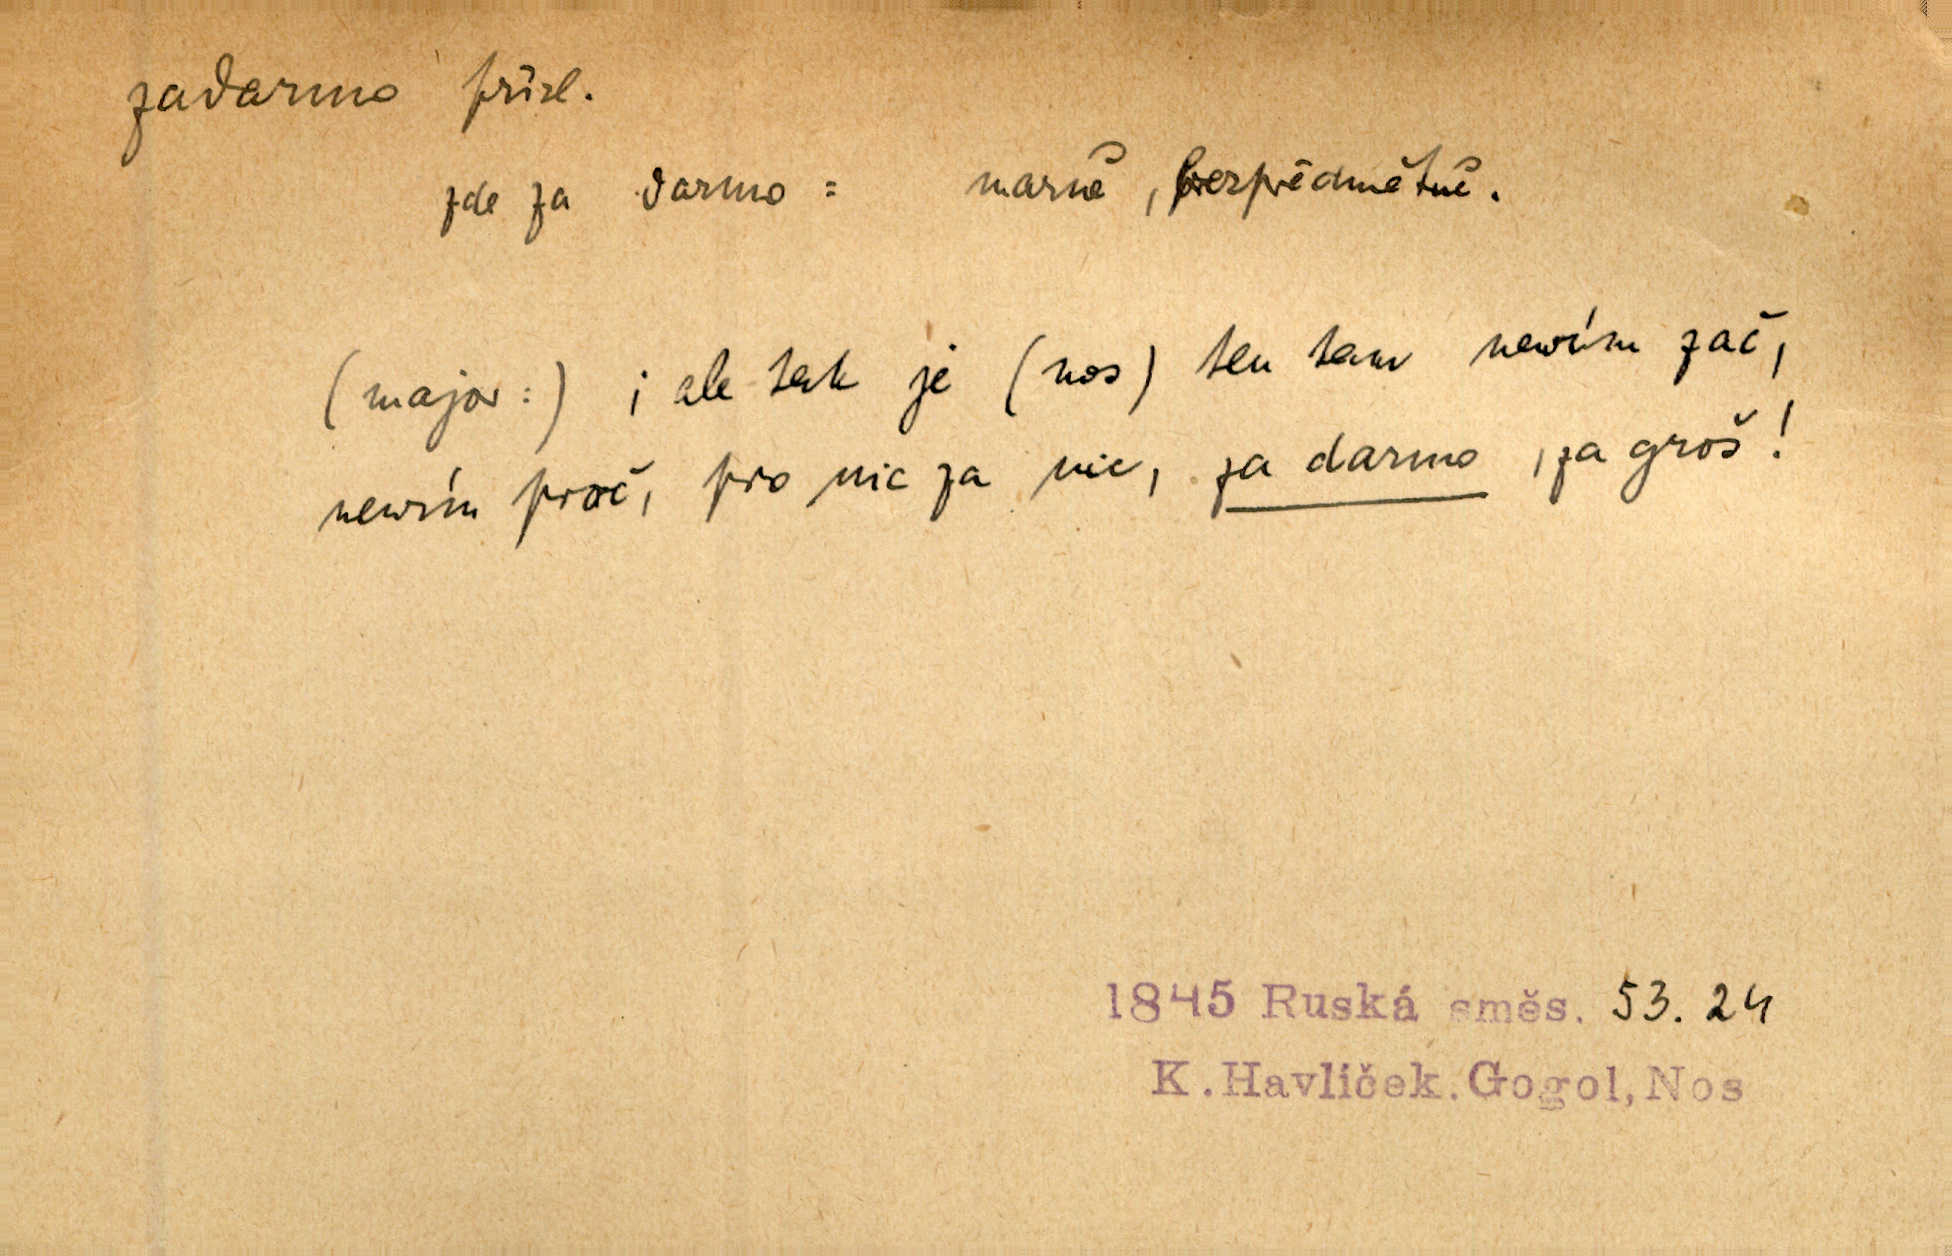 zadarmo přísl.
zde za darmo = marně, bezpředmětně.
(major:) i ale tak je (nos) ten tam newím zač,
newím proč, pro nic za nic, za darmo, za groš!
1845 Ruská směs. 53. 24
K. Havlíček. Gogol, Nos